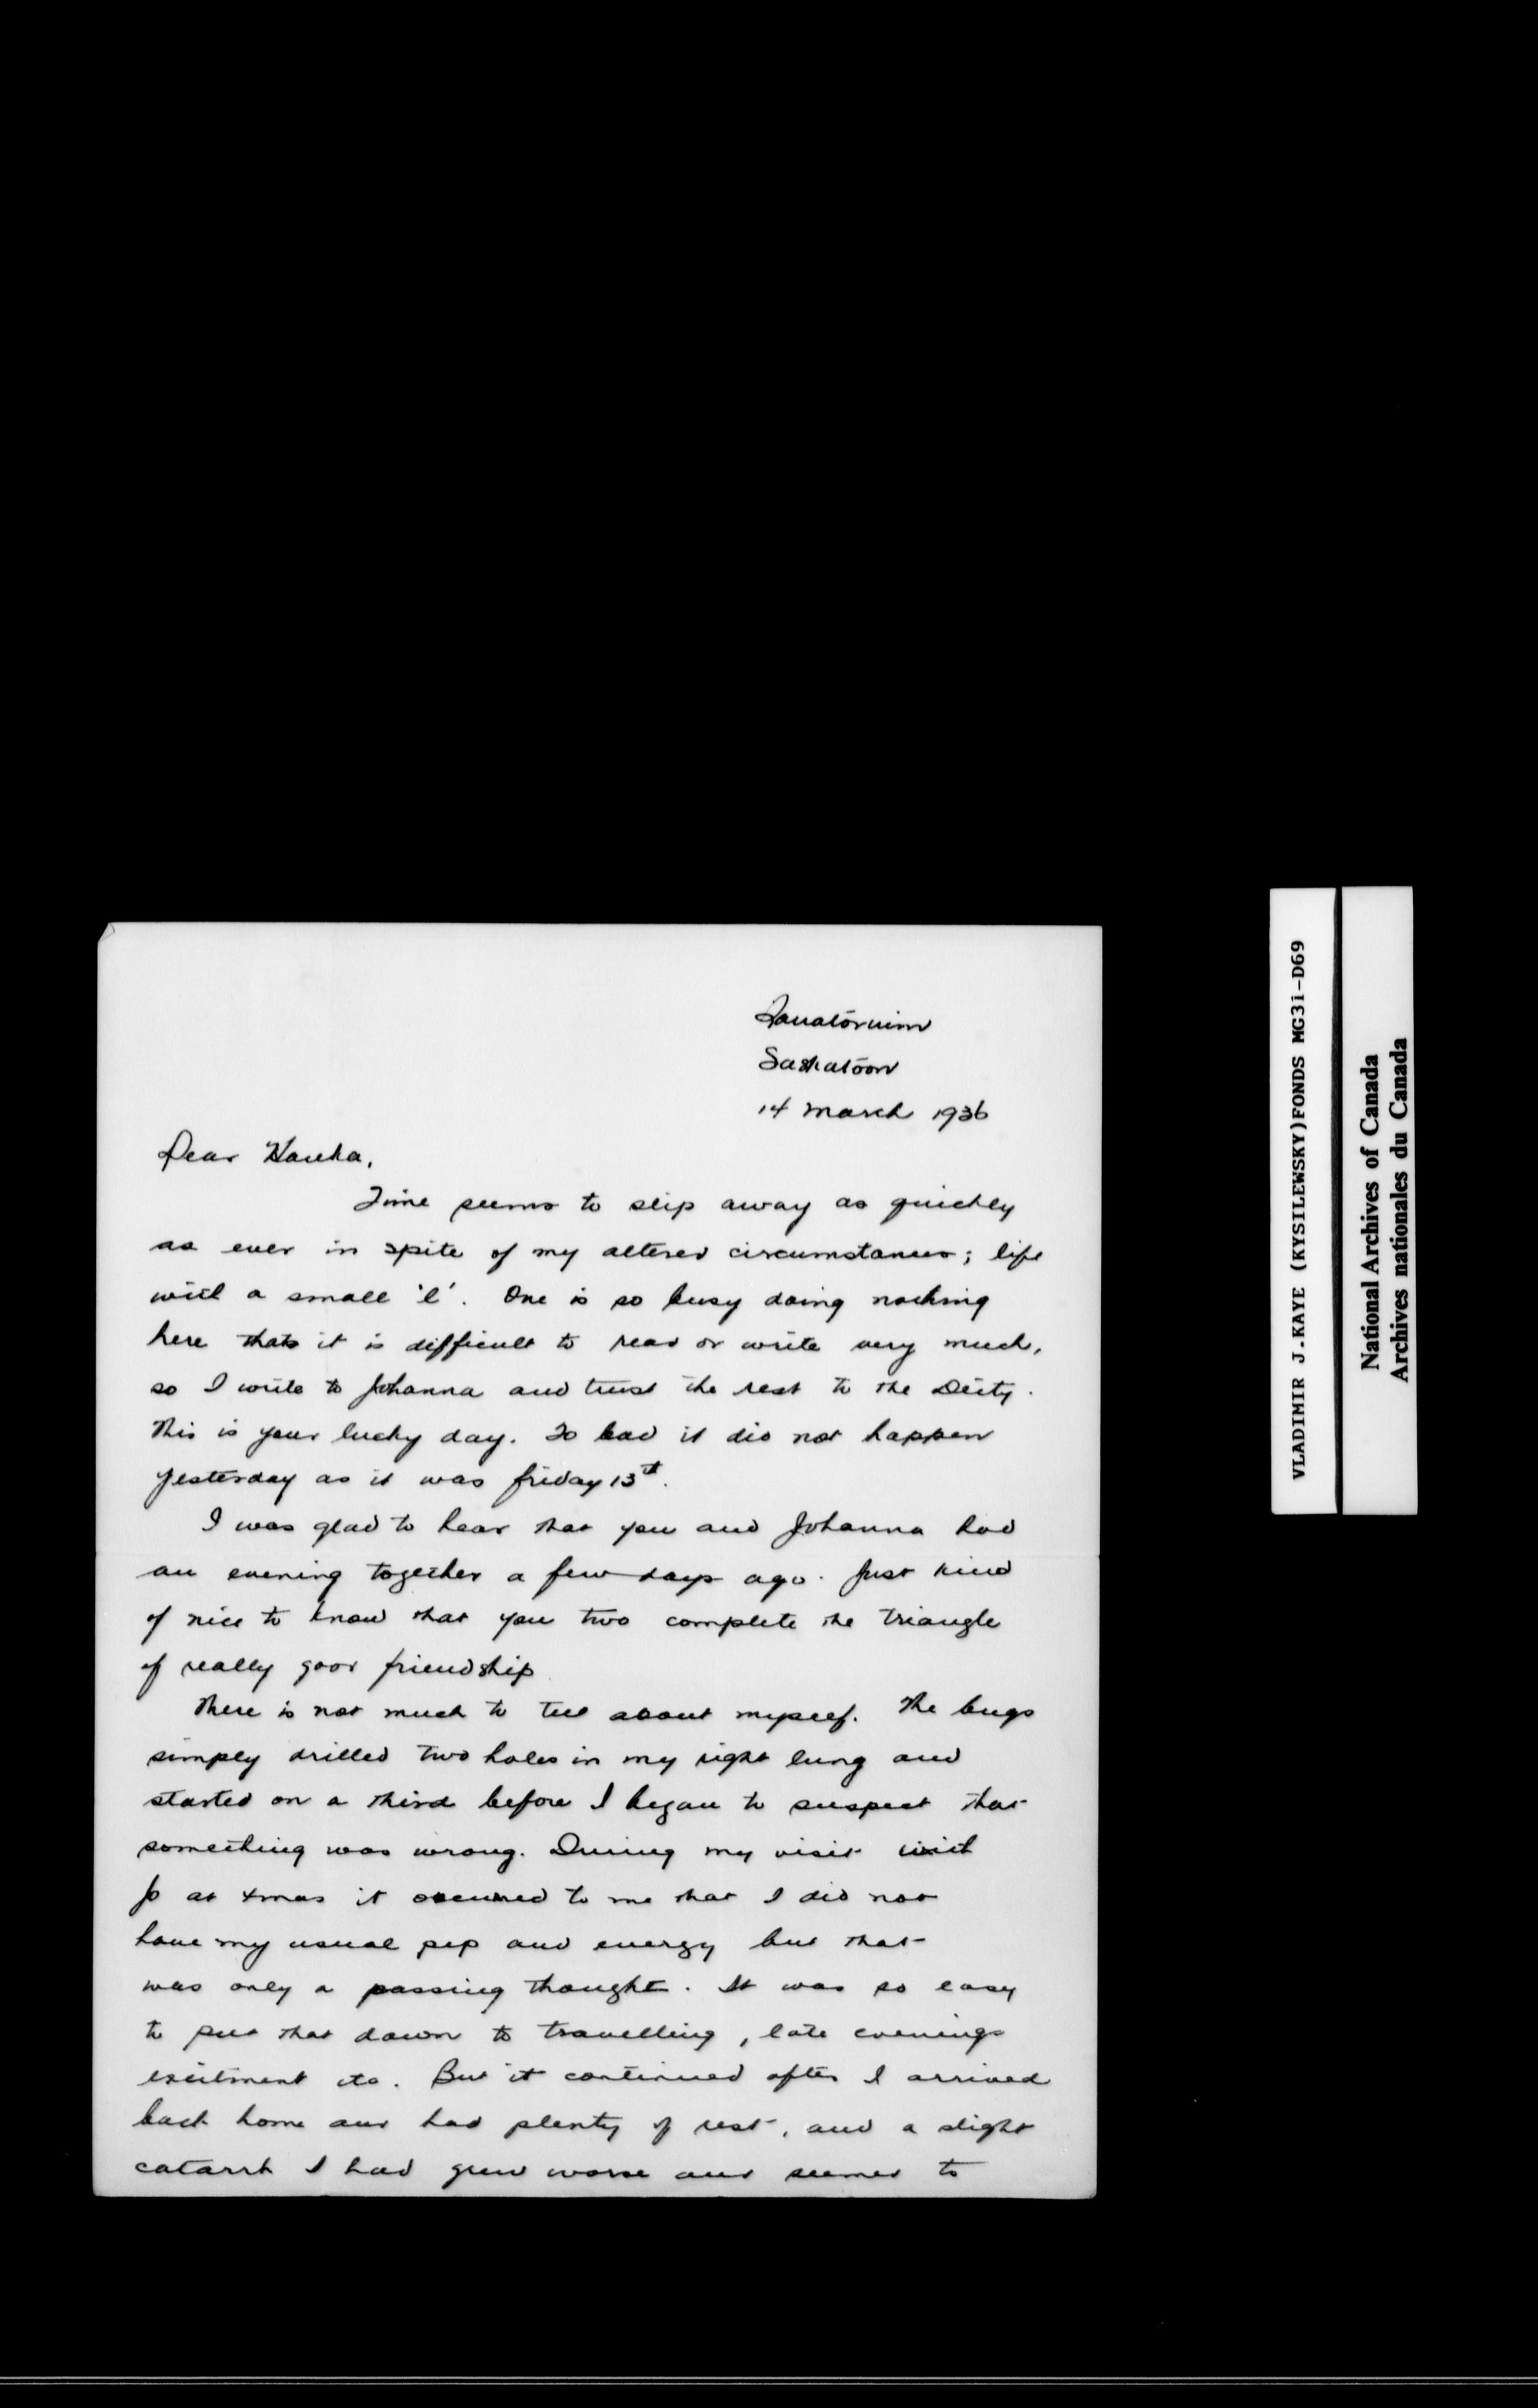 Sanatorium
Saskatoon
14 March 1936
Dear Hanka,
Time seems to slip away as quickly
as ever in spite of my altered circumstances; life
with a small 'l'. One is so busy doing nothing
here thats it is difficult to read or write very much,
so I write to Johanna and trust the rest to the Deity.
This is your lucky day. To bad it did not happen
yesterday as it was friday 13th.
I was glad to hear that you and Johanna had
an evening together a few days ago. Just kind
of nice to know that you two complete the triangle
of really good friendship
There is not much to tell about myself. The bugs
simply drilled two holes in my right lung and
started on a third before I began to suspect that
something was wrong. During my visit with
Jo at Xmas it occurred to me that I did not
have my usual pep and energy but that
was only a passing thought. It was so easy
to put that down to travelling, late evenings
excitment etc. But it continued after I arrived
back home and had plenty of rest, and a slight
catarrh I had grew worse and seemed to
VLADIMIR J.KAYE (KYSILEWSKY)FONDS MG31-D69
National Archives of Canada
Archives nationales du Canada